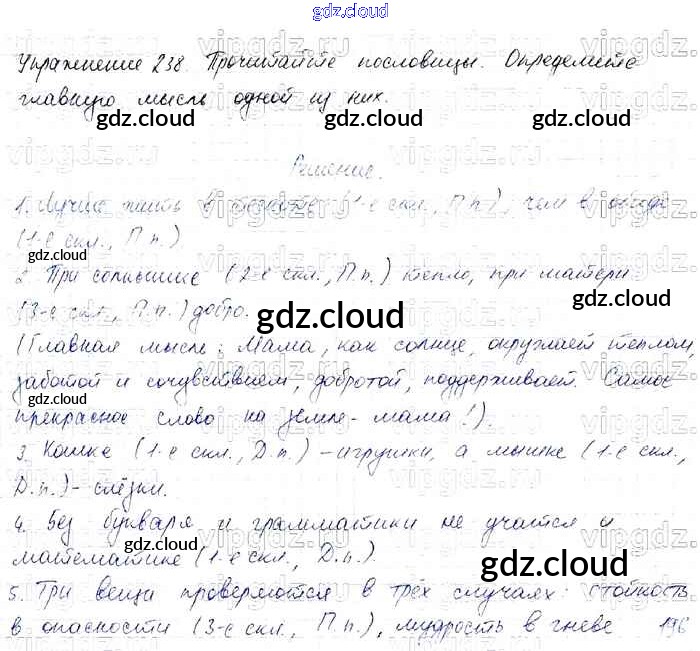 gdz.cloud
Упражнение 238. Прочитайте пословицы. Определите
главную мысль одной из них.
Решение.
1. Лучше жить в тесноте (1-е скл., П.п.), чем в обиде
(1-е скл., П.п.)
2. При солнышке (2-е скл., П.п.) тепло, при матери
(3-е скл., П.п.) добро.
(Главная мысль: Мама, как солнце, окружает теплом,
заботой и сочувствием, добротой, поддерживает. Самое
прекрасное слово на земле - мама!).
3. Кошке (1-е скл., Д.п.) - игрушки, а мышке (1-е скл.,
Д.п.) - слёзки.
4. Без букваря и грамматики не учатся и
математике (1-е скл., Д.п.).
5. Три вещи проверяются в трёх случаях: стойкость
в опасности (3-е скл., П.п.), мудрость в гневе 196